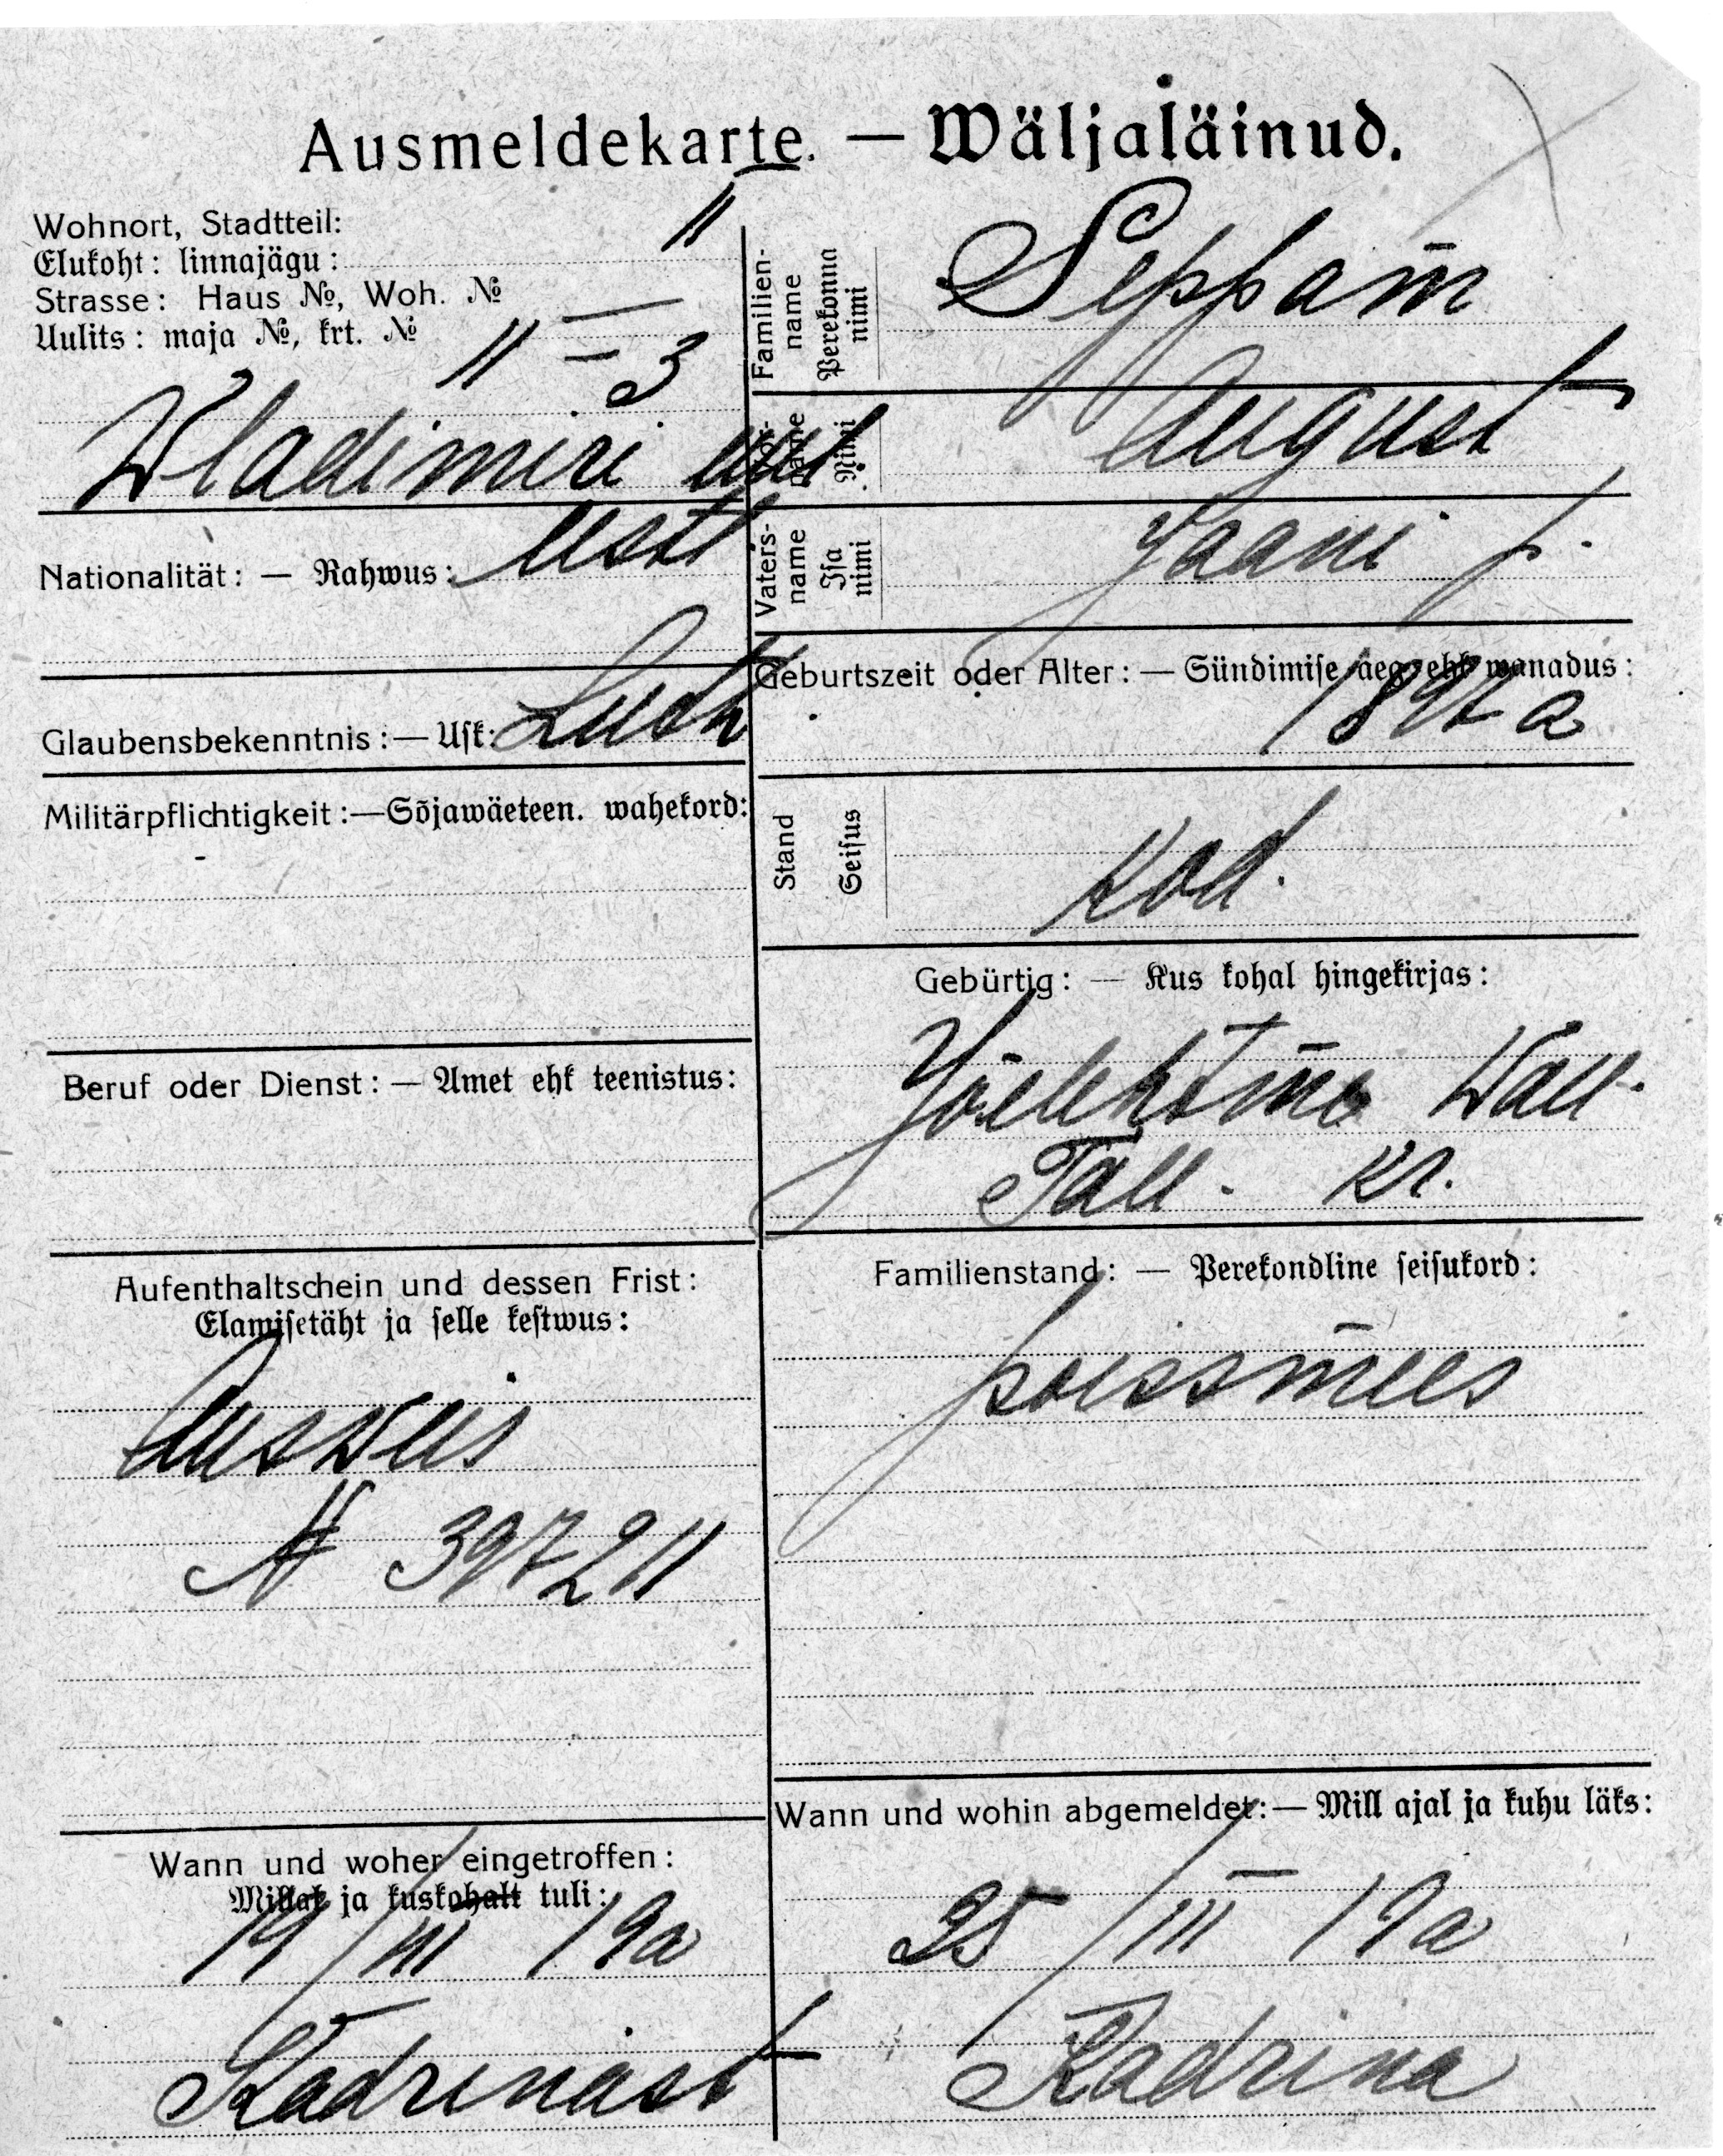 Ausmeldekarte. — Wäljaläinud.
Wohnort, Stadtteil: 11
Elukoht: linnajägu:
Strasse: Haus №, Woh. №
Uulits: maja №, krt. №
11 — 3
Wladimiri uul
Nationalität: — Rahwus: eesti
Glaubensbekenntnis: — Usk: Luth
Militärpflichtigkeit: — Sõjawäeteen. wahekord:
Beruf oder Dienst: — Amet ehk teenistus:
Aufenthaltschein und dessen Frist:
Elamisetäht ja selle kestwus:
Ausweis
№ 397211
Wann und woher eingetroffen:
Millal ja kuskohalt tuli:
19/III 19a
Kadrinast
Familienname
Perekonna nimi
Seppam̄
Vorname
Nimi
August
Vatersname
Isa nimi
Jaani p.
Geburtszeit oder Alter: — Sündimise aeg ehk wanadus:
1897 a
Stand
Seisus
Kod.
Gebürtig: — Kus kohal hingekirjas:
Wall.
Tall. Kr.
Familienstand: — Perekondline seisukord:
poissm̄ees
Wann und wohin abgemeldet: — Mill ajal ja kuhu läks:
25/III 19a
Kadrina